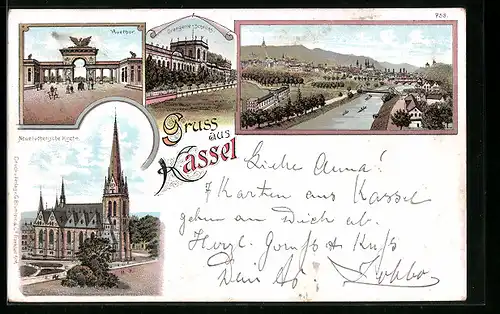 Auethor.
Orangerie-Schloss.
738.
Neue lutherische Kirche.
Gruss
aus
Kassel
Liebe Anna!
7 Karten aus Kassel
gehen an Dich ab.
Herzl. Gruß & Kuß
Dein